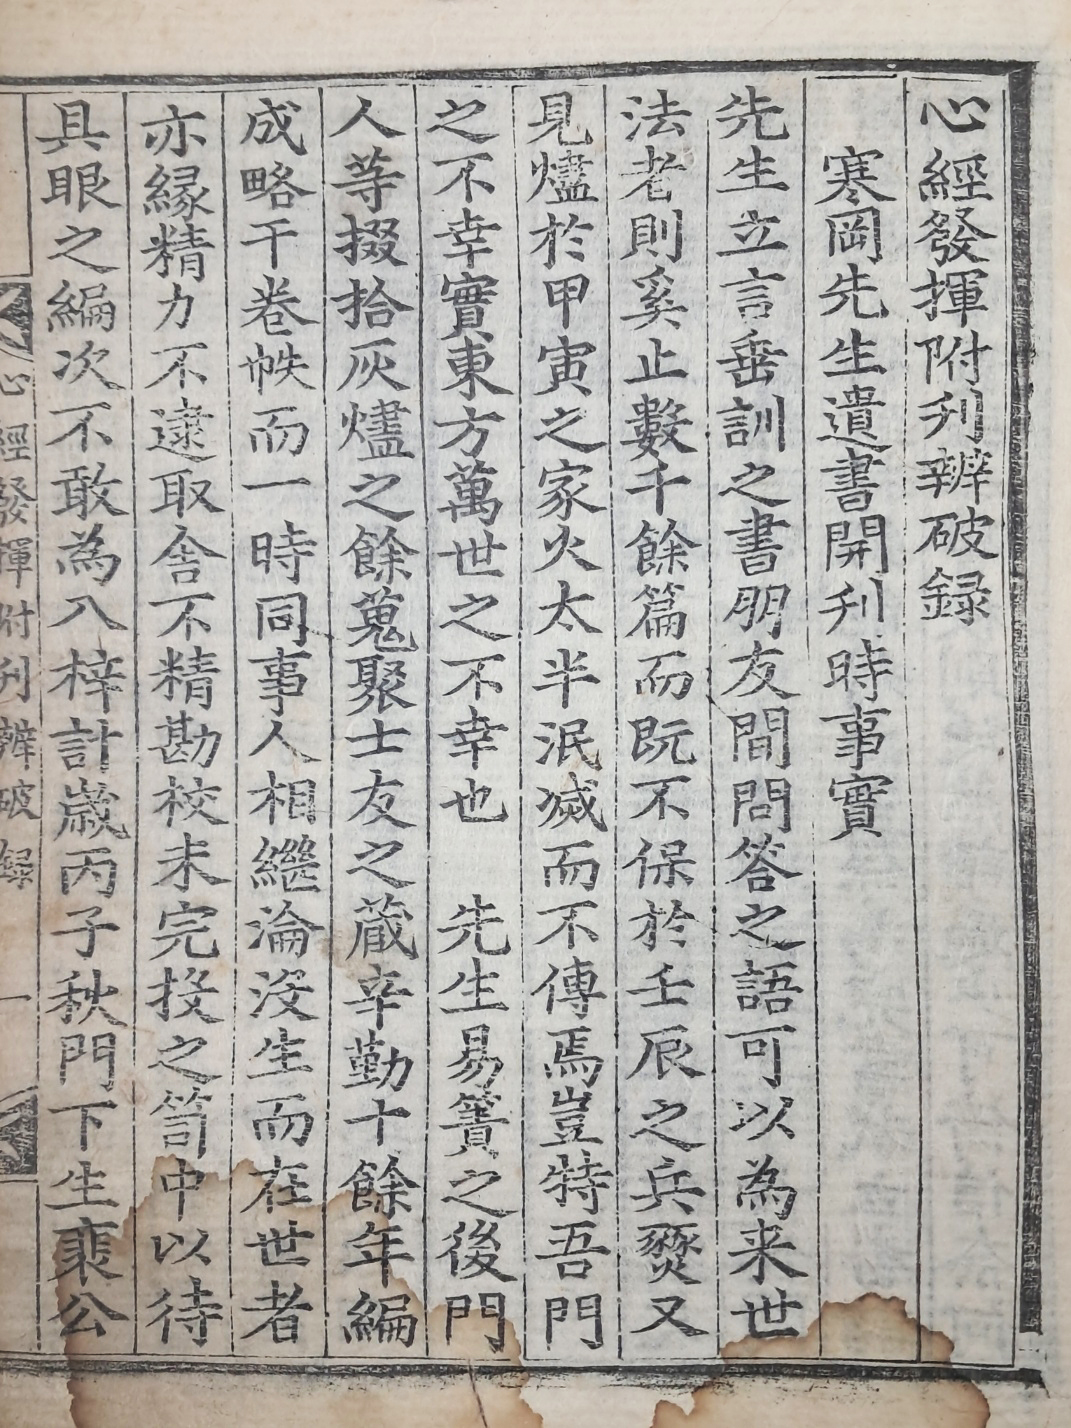 心經發揮附刋辨破録
寒岡先生遺書開刋時事實
先生立言垂訓之書朋友間問答之語可以為来世
法者則奚止數千餘篇而既不保於壬辰之兵燹又
見燼於甲寅之家火太半泯滅而不傳焉豈特吾門
之不幸實東方萬世之不幸也　先生易簀之後門
人等掇拾灰燼之餘蒐聚士友之蔵辛勤十餘年編
成略干卷帙而一時同事人相繼淪沒生而在世者
亦緣精力不逮取舍不精勘校未完投之笥中以待
具眼之編次不敢為入梓計歲丙子秋門下生裵公
心經發揮附刋辨破録　一